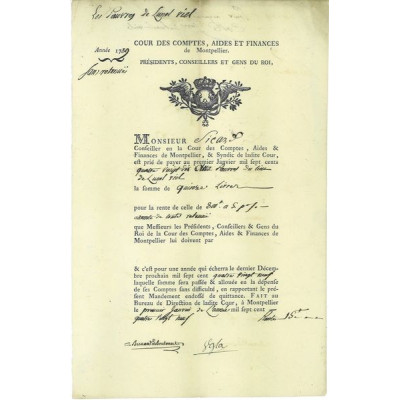 Les Pauvres de Lunel viel
COUR DES COMPTES, AIDES ET FINANCES
Année 1789
de Montpellier.
PRÉSIDENTS, CONSEILLERS ET GENS DU ROI,
MONSIEUR Sicard
Conseiller en la Cour des Comptes, Aides &
Finances de Montpellier, & Syndic de ladite Cour,
est prié de payer au premier Janvier mil sept cents
quatre vingt dix aux Pauvres du lieu
de Lunel viel
la somme de quinze livres
pour la rente de celle de
que Messieurs les Présidents, Conseillers & Gens du
Roi de la Cour des Comptes, Aides & Finances de
Montpellier lui doivent par
& c'est pour une année qui écherra le dernier Décem-
bre prochain mil sept cent quatre vingt neuf
laquelle somme sera passée & allouée en la dépense
de ses Comptes sans difficulté, en rapportant le pré-
sent Mandement endossé de quittance. FAIT au
Bureau de Direction de ladite Cour, à Montpellier
le premier Janvier de L'année mil sept cent
quatre vingt neuf